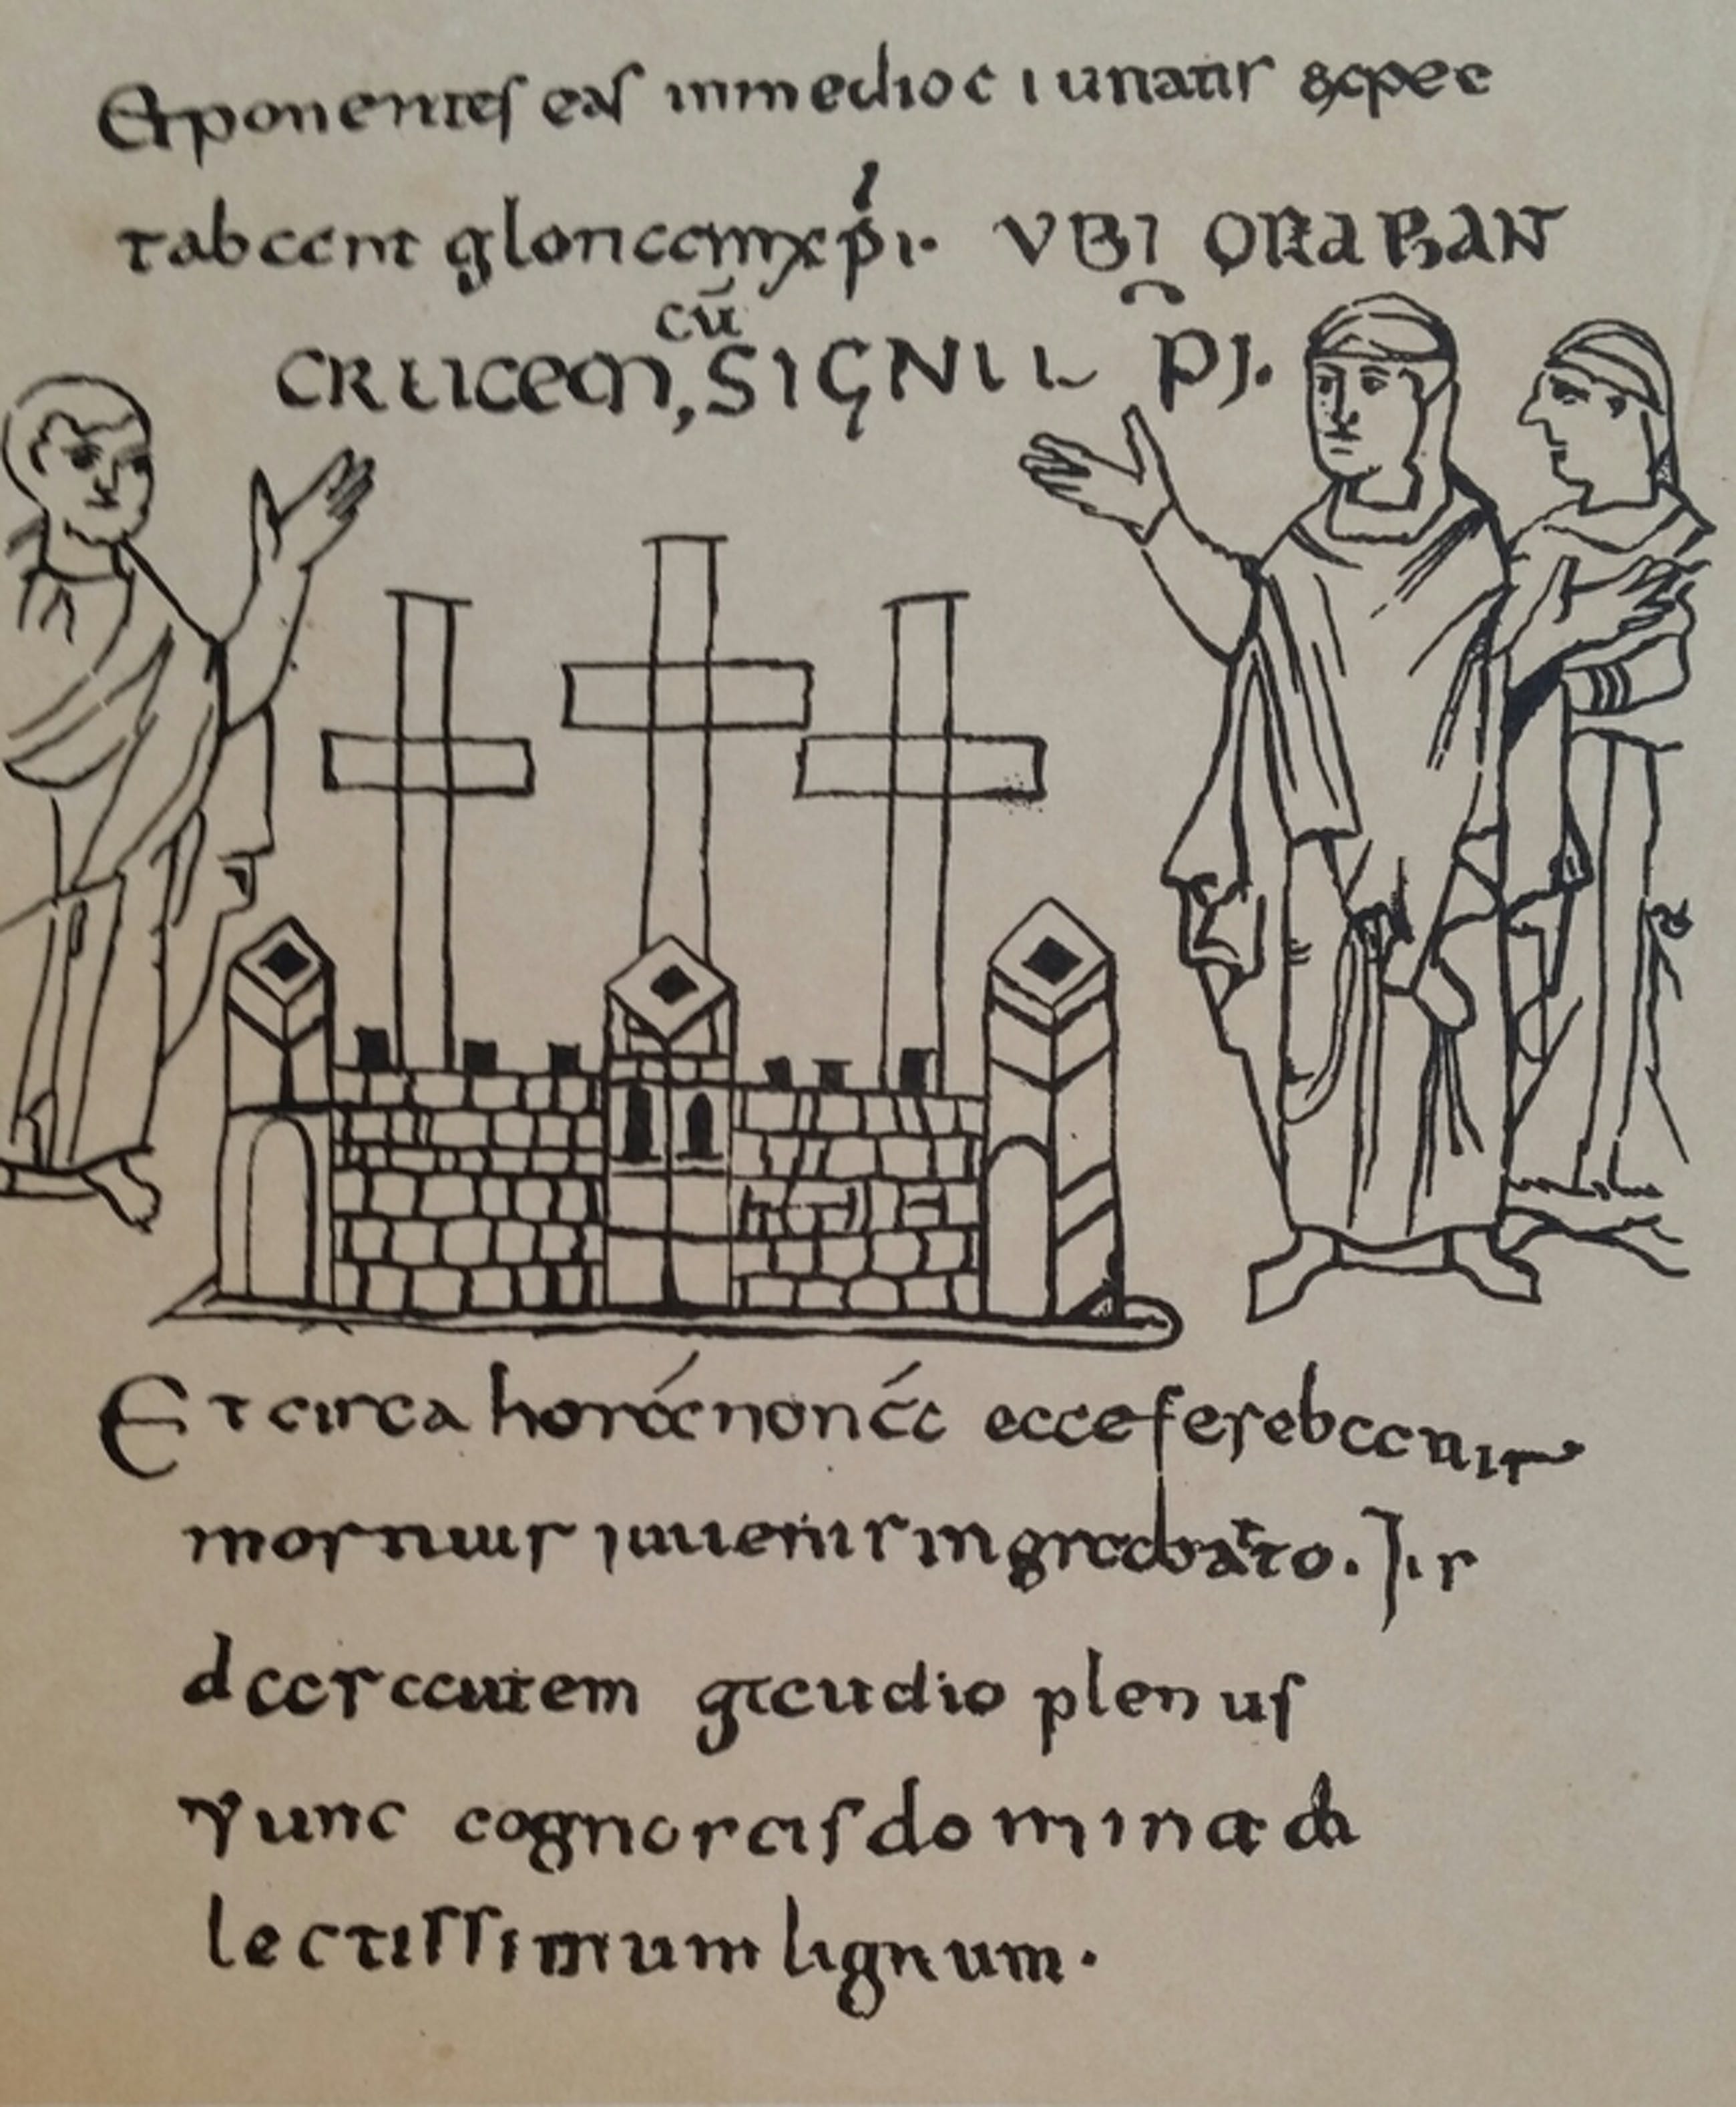 Et ponentes eas in medio ciuitatis expec
tabant gloriam xpi. VBI ORABAN
CRUCEM, cū SIGNU PI.
Et circa horā nonā ecce ferebatur
mortuus iuuenis in grabato. I.r
das autem gaudio plenus
nunc cognoscis domina di
lectissimum lignum.